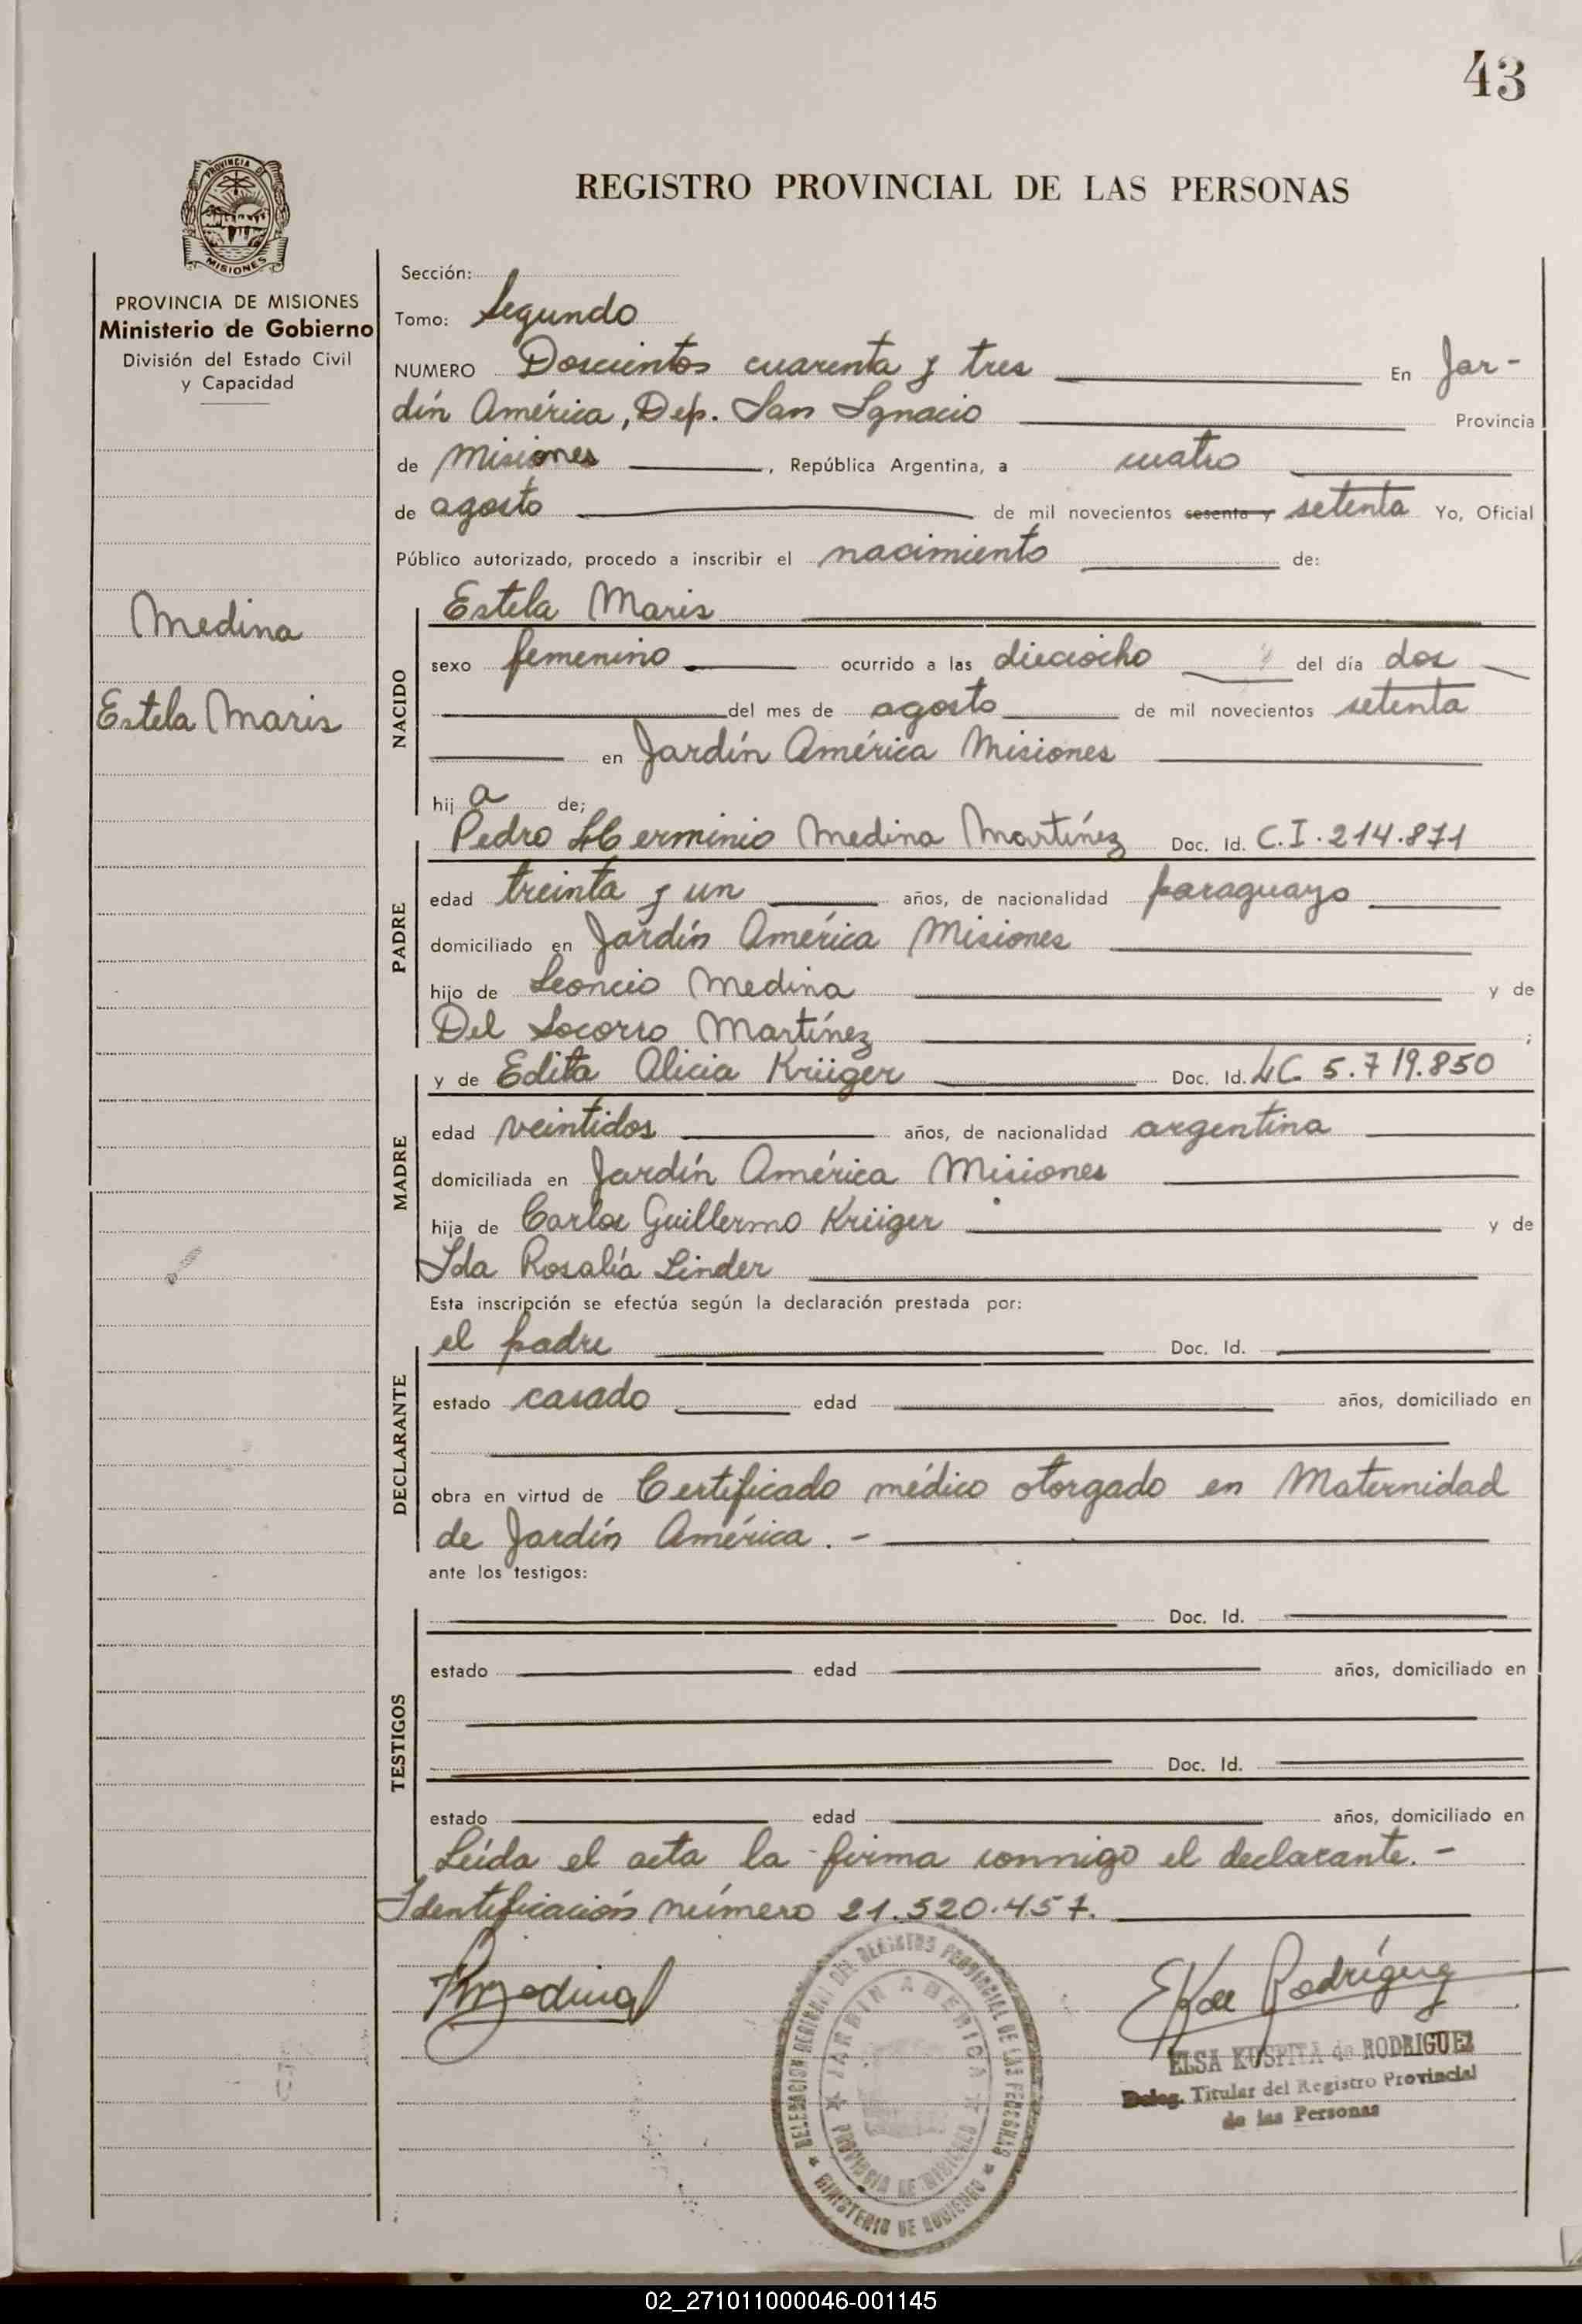 43
PROVINCIA DE
MISIONES
REGISTRO PROVINCIAL DE LAS PERSONAS
PROVINCIA DE MISIONES
Ministerio de Gobierno
División del Estado Civil
y Capacidad
Medina
Estela Maris
Sección:
Tomo: Segundo
NUMERO Doscientos cuarenta y tres En Jar-
dín América, Dep. San Ignacio Provincia
de Misiones, República Argentina, a cuatro
de agosto de mil novecientos sesenta y setenta Yo, Oficial
Público autorizado, procedo a inscribir el nacimiento de:
NACIDO
Estela Maris
sexo femenino ocurrido a las dieciocho del día dos
del mes de agosto de mil novecientos setenta
en Jardín América Misiones
hija de;
PADRE
Pedro Herminio Medina Martínez Doc. Id. C.I. 214.871
edad treinta y un años, de nacionalidad paraguayo
domiciliado en Jardín América Misiones
hijo de Leoncio Medina y de
Del Socorro Martínez ;
MADRE
y de Edita Alicia Krüiger Doc. Id. LC. 5.719.850
edad veintidos años, de nacionalidad argentina
domiciliada en Jardín América Misiones
hija de Carlos Guillermo Krüiger y de
Ida Rosalía Linder
Esta inscripción se efectúa según la declaración prestada por:
DECLARANTE
el padre Doc. Id.
estado casado edad años, domiciliado en
obra en virtud de Certificado médico otorgado en Maternidad
de Jardín América. -
ante los testigos:
TESTIGOS
Doc. Id.
estado edad años, domiciliado en
Doc. Id.
estado edad años, domiciliado en
Leída el acta la firma conmigo el declarante. -
Identificación número 21.520.457.
PMedina
Rodríguez
DELEGACION DEL REGISTRO PROVINCIAL DE LAS PERSONAS
MINISTERIO DE GOBIERNO
JARDIN AMERICA
PROVINCIA DE MISIONES
ELSA KUSPITA de RODRIGUEZ
Deleg. Titular del Registro Provincial
de las Personas
02_271011000046-001145